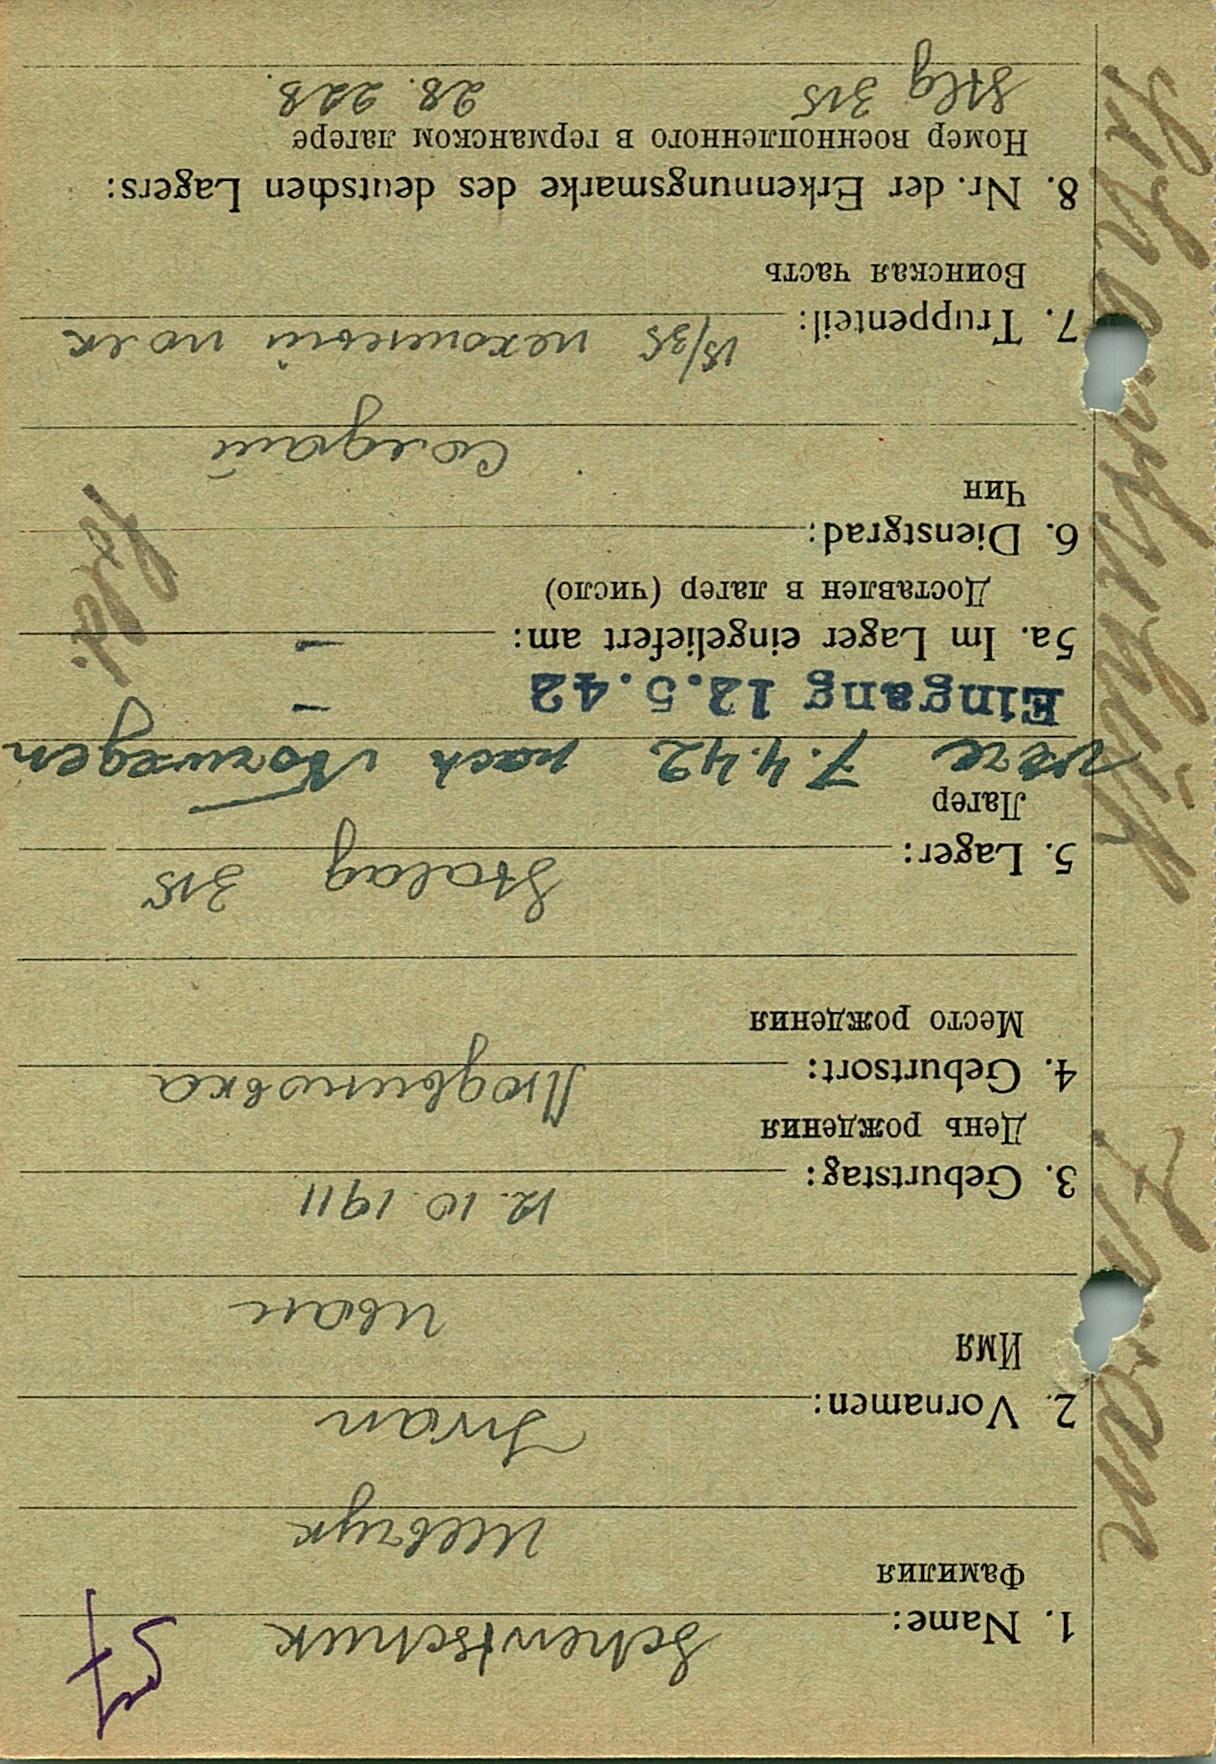 1. Name: Schewtschuk
Фамилия Шевчук
2. Vornamen: Iwan
Имя Иван
3. Geburtstag: 12.10.1911
День рождения
4. Geburtsort: Людвиновка
Место рождения
5. Lager: Stalag 315
Лагер
7.4.42 nach Norwegen
Eingang 12.5.42 –
5a. Im Lager eingeliefert am: –
Доставлен в лагер (число)
6. Dienstgrad:
Чин Солдат
7. Truppenteil: 15/35 пехотный полк
Воинская часть
8. Nr. der Erkennungsmarke des deutschen Lagers:
Номер военнопленного в германском лагере
Stlg 315 28.228.
Sold.
Iwan